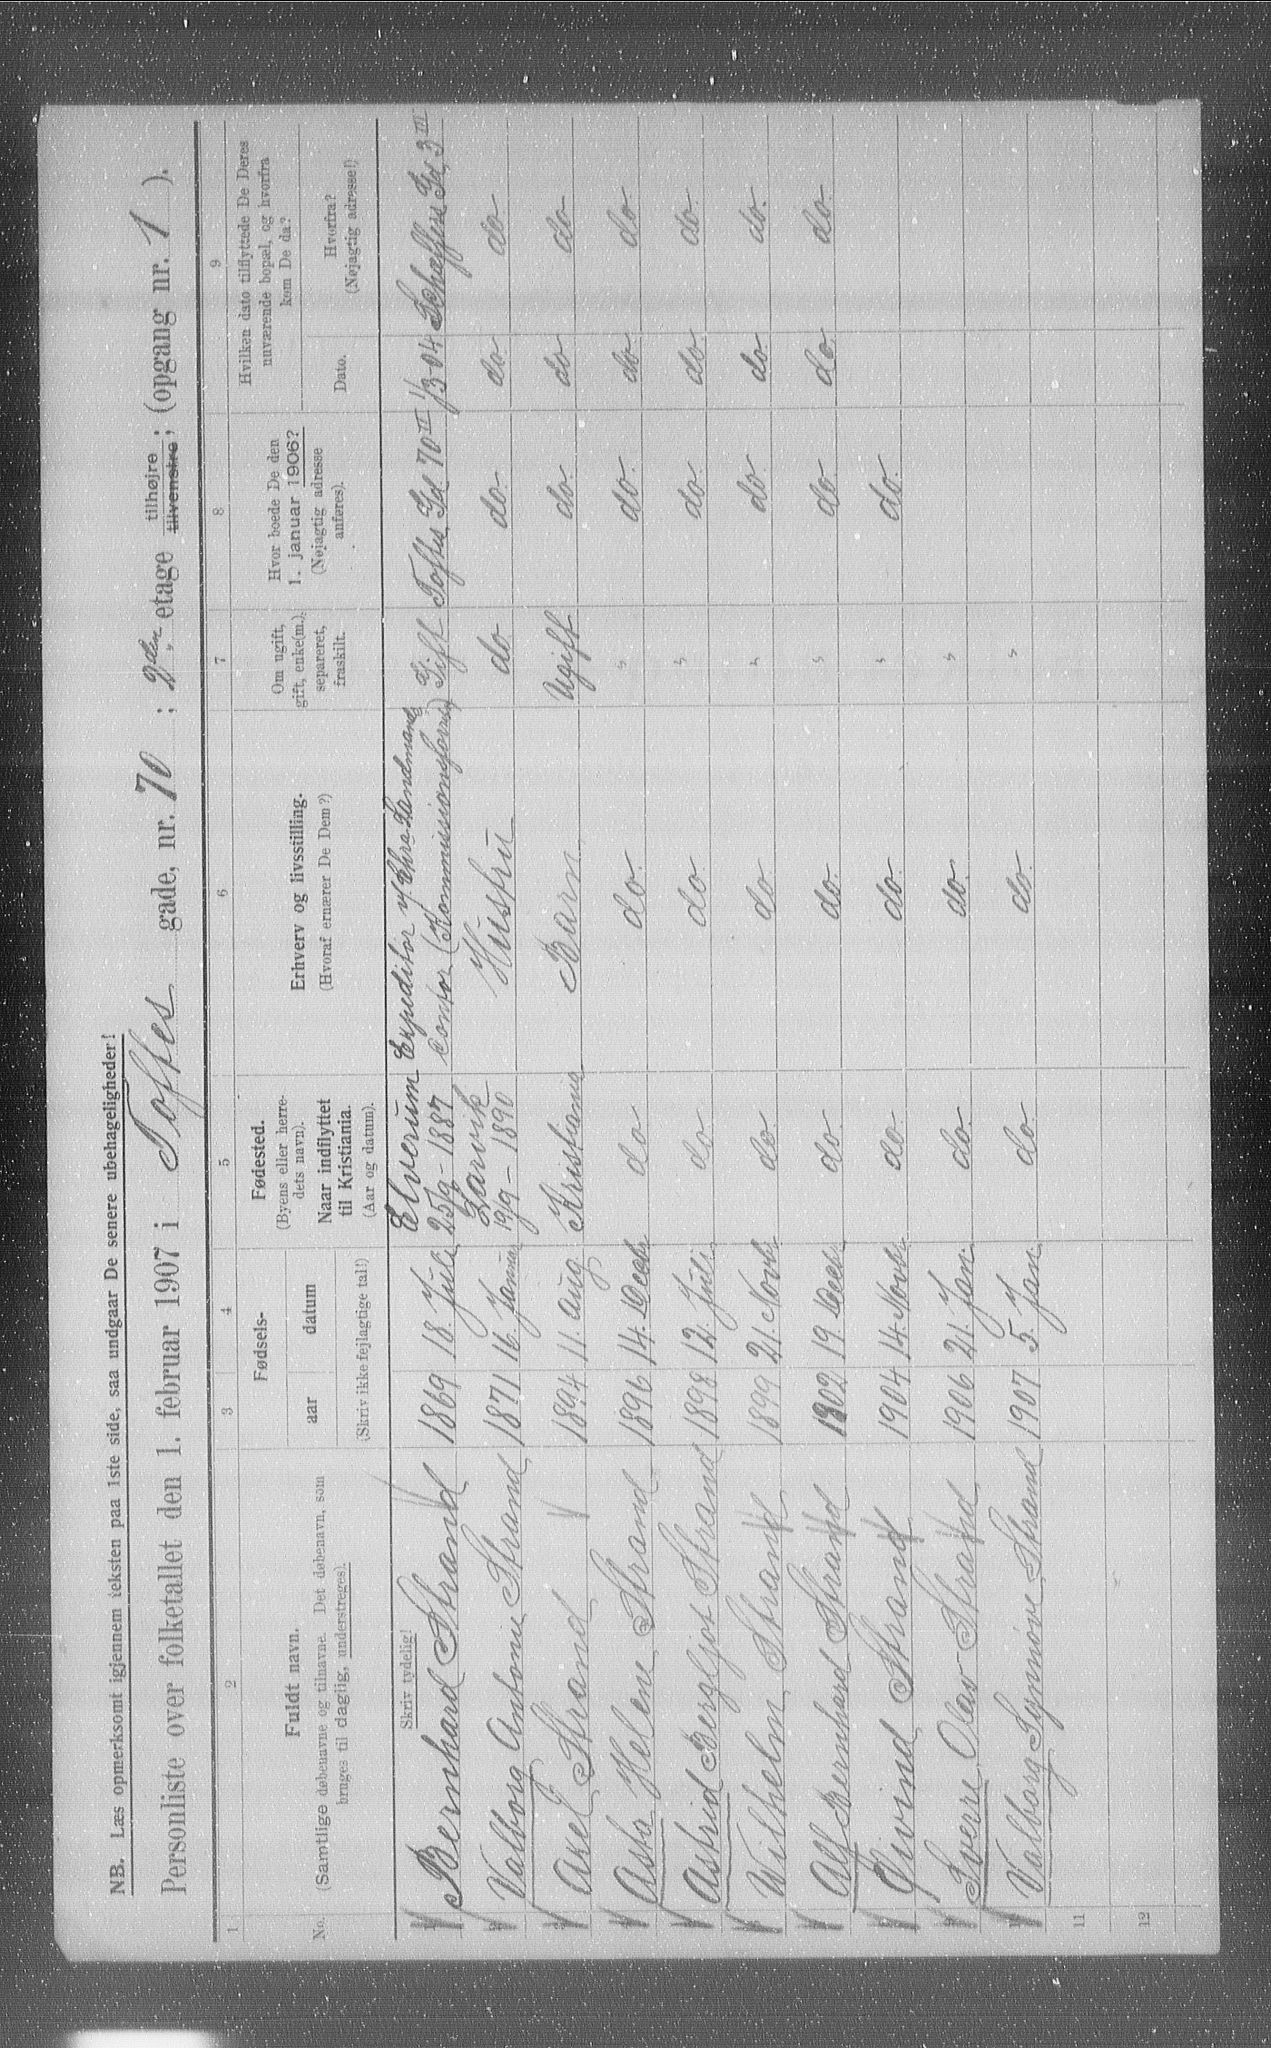 NB. Læs opmerksomt igjennem teksten paa 1ste side, saa undgaar De senere ubehageligheder!
Personliste over folketallet den 1. februar 1907 i Toftes gade, nr. 70; 2den etage tilhøjre tilvenstre; (opgang nr. 1).
1 2 3 4 5 6 7 8 9
No. Fuldt navn. (Samtlige døbenavne og tilnavne. Det døbenavn, som bruges til daglig, understreges). Fødsels- aar datum (Skriv ikke fejlagtige tal!) Fødested. (Byens eller herredets navn). Naar indflyttet til Kristiania. (Aar og datum). Erhverv og livsstilling. (Hvoraf ernærer De Dem?) Om ugift, gift, enke(m.), separeret, fraskilt. Hvor boede De den 1. januar 1906? (Nøjagtig adresse anføres). Hvilken dato tilflyttede De Deres nuværende bopæl, og hvorfra kom De da? Dato. Hvorfra? (Nøjagtig adresse!)
Skriv tydelig!
1 Bernhard Strand 1869 18. Juli Elverum 25/9-1887 Expeditør v/ Chra Landmands Contor (Kommissionsforr) Gift Toftes Gd 70 II 1/3-04 Schæffers Gd 3 III
2 Valborg Antonie Strand 1871 16. Januar Larvik 19/9-1890 Hustru do do. do. do.
3 Axel Strand 1894 11. Aug Kristiania Barn. Ugift do. do do
4 Asta Helene Strand 1896 14. Decbr do do. " do. do do
5 Astrid Bergljot Strand 1898 12. Juli do do " do. do do.
6 Wilhelm Strand 1899 21. Novbr do do " do. do do.
7 Alf Bernhard Strand 1902 19 Decbr do do. " do. do. do.
8 Eivind Strand 1904 14. Novbr. do. do. " do.
9 Sverre Olav Strand 1906 21. Jan. do. do. "
10 Valborg Synnøve Strand 1907 5. Jan. do do. "
11
12